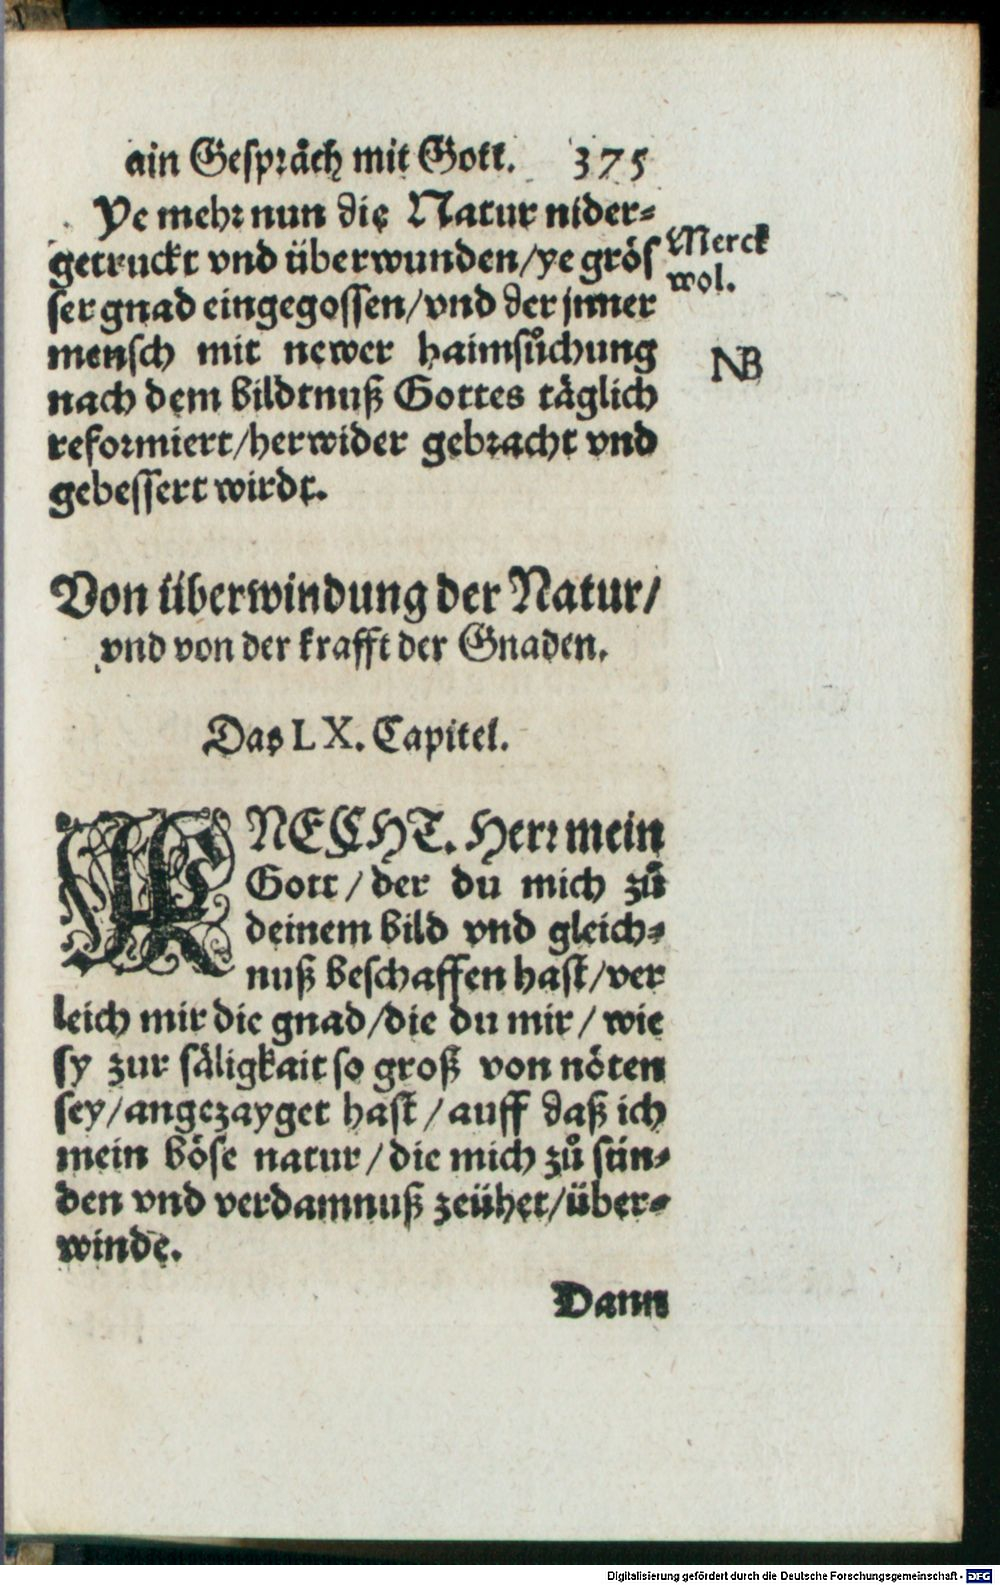 ain Gespräch mit Gott. 375
Ye mehr nun die Natur nider-
getruckt vnd überwunden/ye grös
ser gnad eingegossen/vnd der jnner
mensch mit newer haimsůchung
nach dem bildtnuß Gottes täglich
reformiert/herwider gebracht vnd
gebessert wirdt.
Merck
wol.
NB
Von überwindung der Natur/
vnd von der krafft der Gnaden.
Das LX. Capitel.
KNECHT. Herr mein
Gott/der du mich zů
deinem bild vnd gleich-
nuß beschaffen hast/ver
leich mir die gnad/die du mir/wie
sy zur säligkait so groß von nöten
sey/angezayget hast/auff daß ich
mein böse natur/die mich zů sün-
den vnd verdamnuß zeühet/über-
winde.
Dann
Digitalisierung gefördert durch die Deutsche Forschungsgemeinschaft - DFG